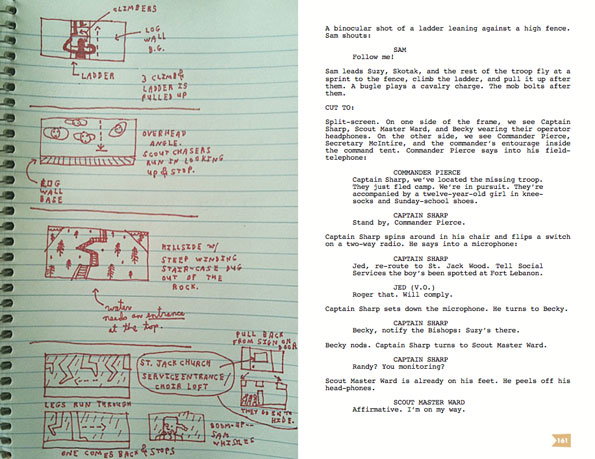 CLIMBERS
LOG
WALL
B.G.
LADDER
3 CLIMB &
LADDER IS
PULLED UP
OVERHEAD
ANGLE.
SCOUT CHASERS
RUN IN LOOKING
UP & STOP.
LOG
WALL
BASE
HILLSIDE W/
STEEP WINDING
STAIRCASE DUG
OUT OF THE
ROCK.
water
needs an entrance
at the top.
PULL BACK
FROM SIGN ON
DOOR
ST. JACK CHURCH
SERVICE ENTRANCE/
CHOIR LOFT
LEGS RUN THROUGH
THEY GO IN TO
HIDE.
BOOM-UP--
SAM
WHISTLES
ONE COMES BACK & STOPS
A binocular shot of a ladder leaning against a high fence.
Sam shouts:
SAM
Follow me!
Sam leads Suzy, Skotak, and the rest of the troop fly at a
sprint to the fence, climb the ladder, and pull it up after
them. A bugle plays a cavalry charge. The mob bolts after
them.
CUT TO:
Split-screen. On one side of the frame, we see Captain
Sharp, Scout Master Ward, and Becky wearing their operator
headphones. On the other side, we see Commander Pierce,
Secretary McIntire, and the commander's entourage inside
the command tent. Commander Pierce says into his field-
telephone:
COMMANDER PIERCE
Captain Sharp, we've located the missing troop.
They just fled camp. We're in pursuit. They're
accompanied by a twelve-year-old girl in knee-
socks and Sunday-school shoes.
CAPTAIN SHARP
Stand by, Commander Pierce.
Captain Sharp spins around in his chair and flips a switch
on a two-way radio. He says into a microphone:
CAPTAIN SHARP
Jed, re-route to St. Jack Wood. Tell Social
Services the boy's been spotted at Fort Lebanon.
JED (V.O.)
Roger that. Will comply.
Captain Sharp sets down the microphone. He turns to Becky.
CAPTAIN SHARP
Becky, notify the Bishops: Suzy's there.
Becky nods. Captain Sharp turns to Scout Master Ward.
CAPTAIN SHARP
Randy? You monitoring?
Scout Master Ward is already on his feet. He peels off his
head-phones.
SCOUT MASTER WARD
Affirmative. I'm on my way.
161